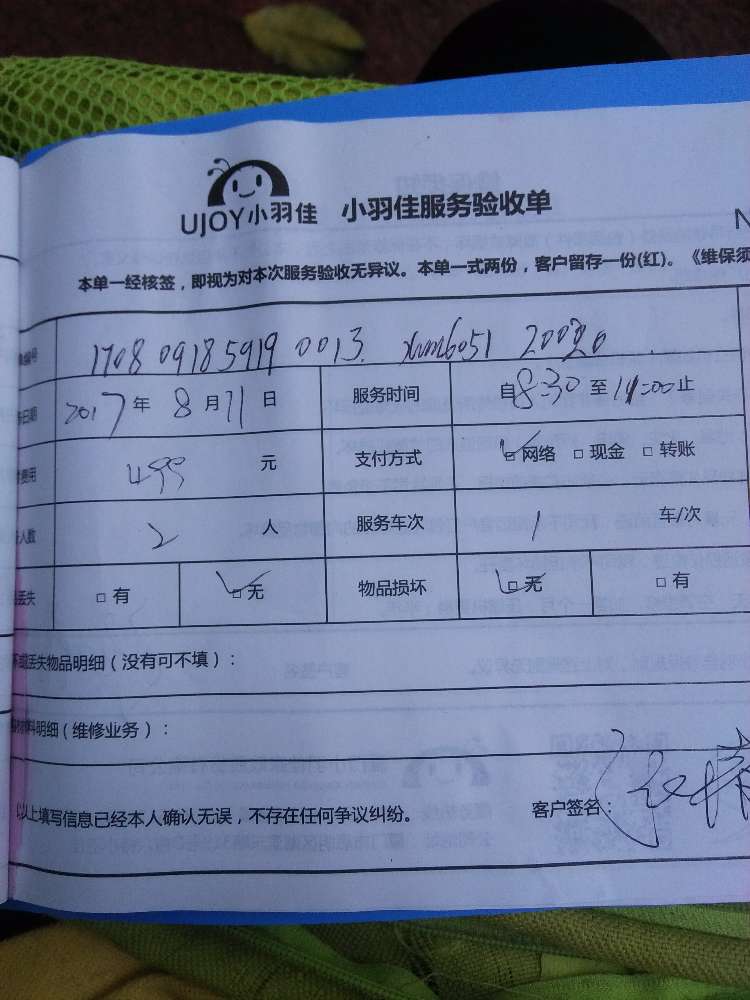 UJOY小羽佳 小羽佳服务验收单 N
本单一经核签，即视为对本次服务验收无异议。本单一式两份，客户留存一份(红)。《维保须
编号 170809185919 0013. xum6051 20020
日期 2017年 8月11日 服务时间 自8:30至14:00止
费用 499 元 支付方式 ☑网络 □现金 □转账
人数 2 人 服务车次 1 车/次
丢失 □有 ☑无 物品损坏 ☑无 □有
坏或丢失物品明细（没有可不填）：
材料明细（维修业务）：
以上填写信息已经本人确认无误，不存在任何争议纠纷。 客户签名：